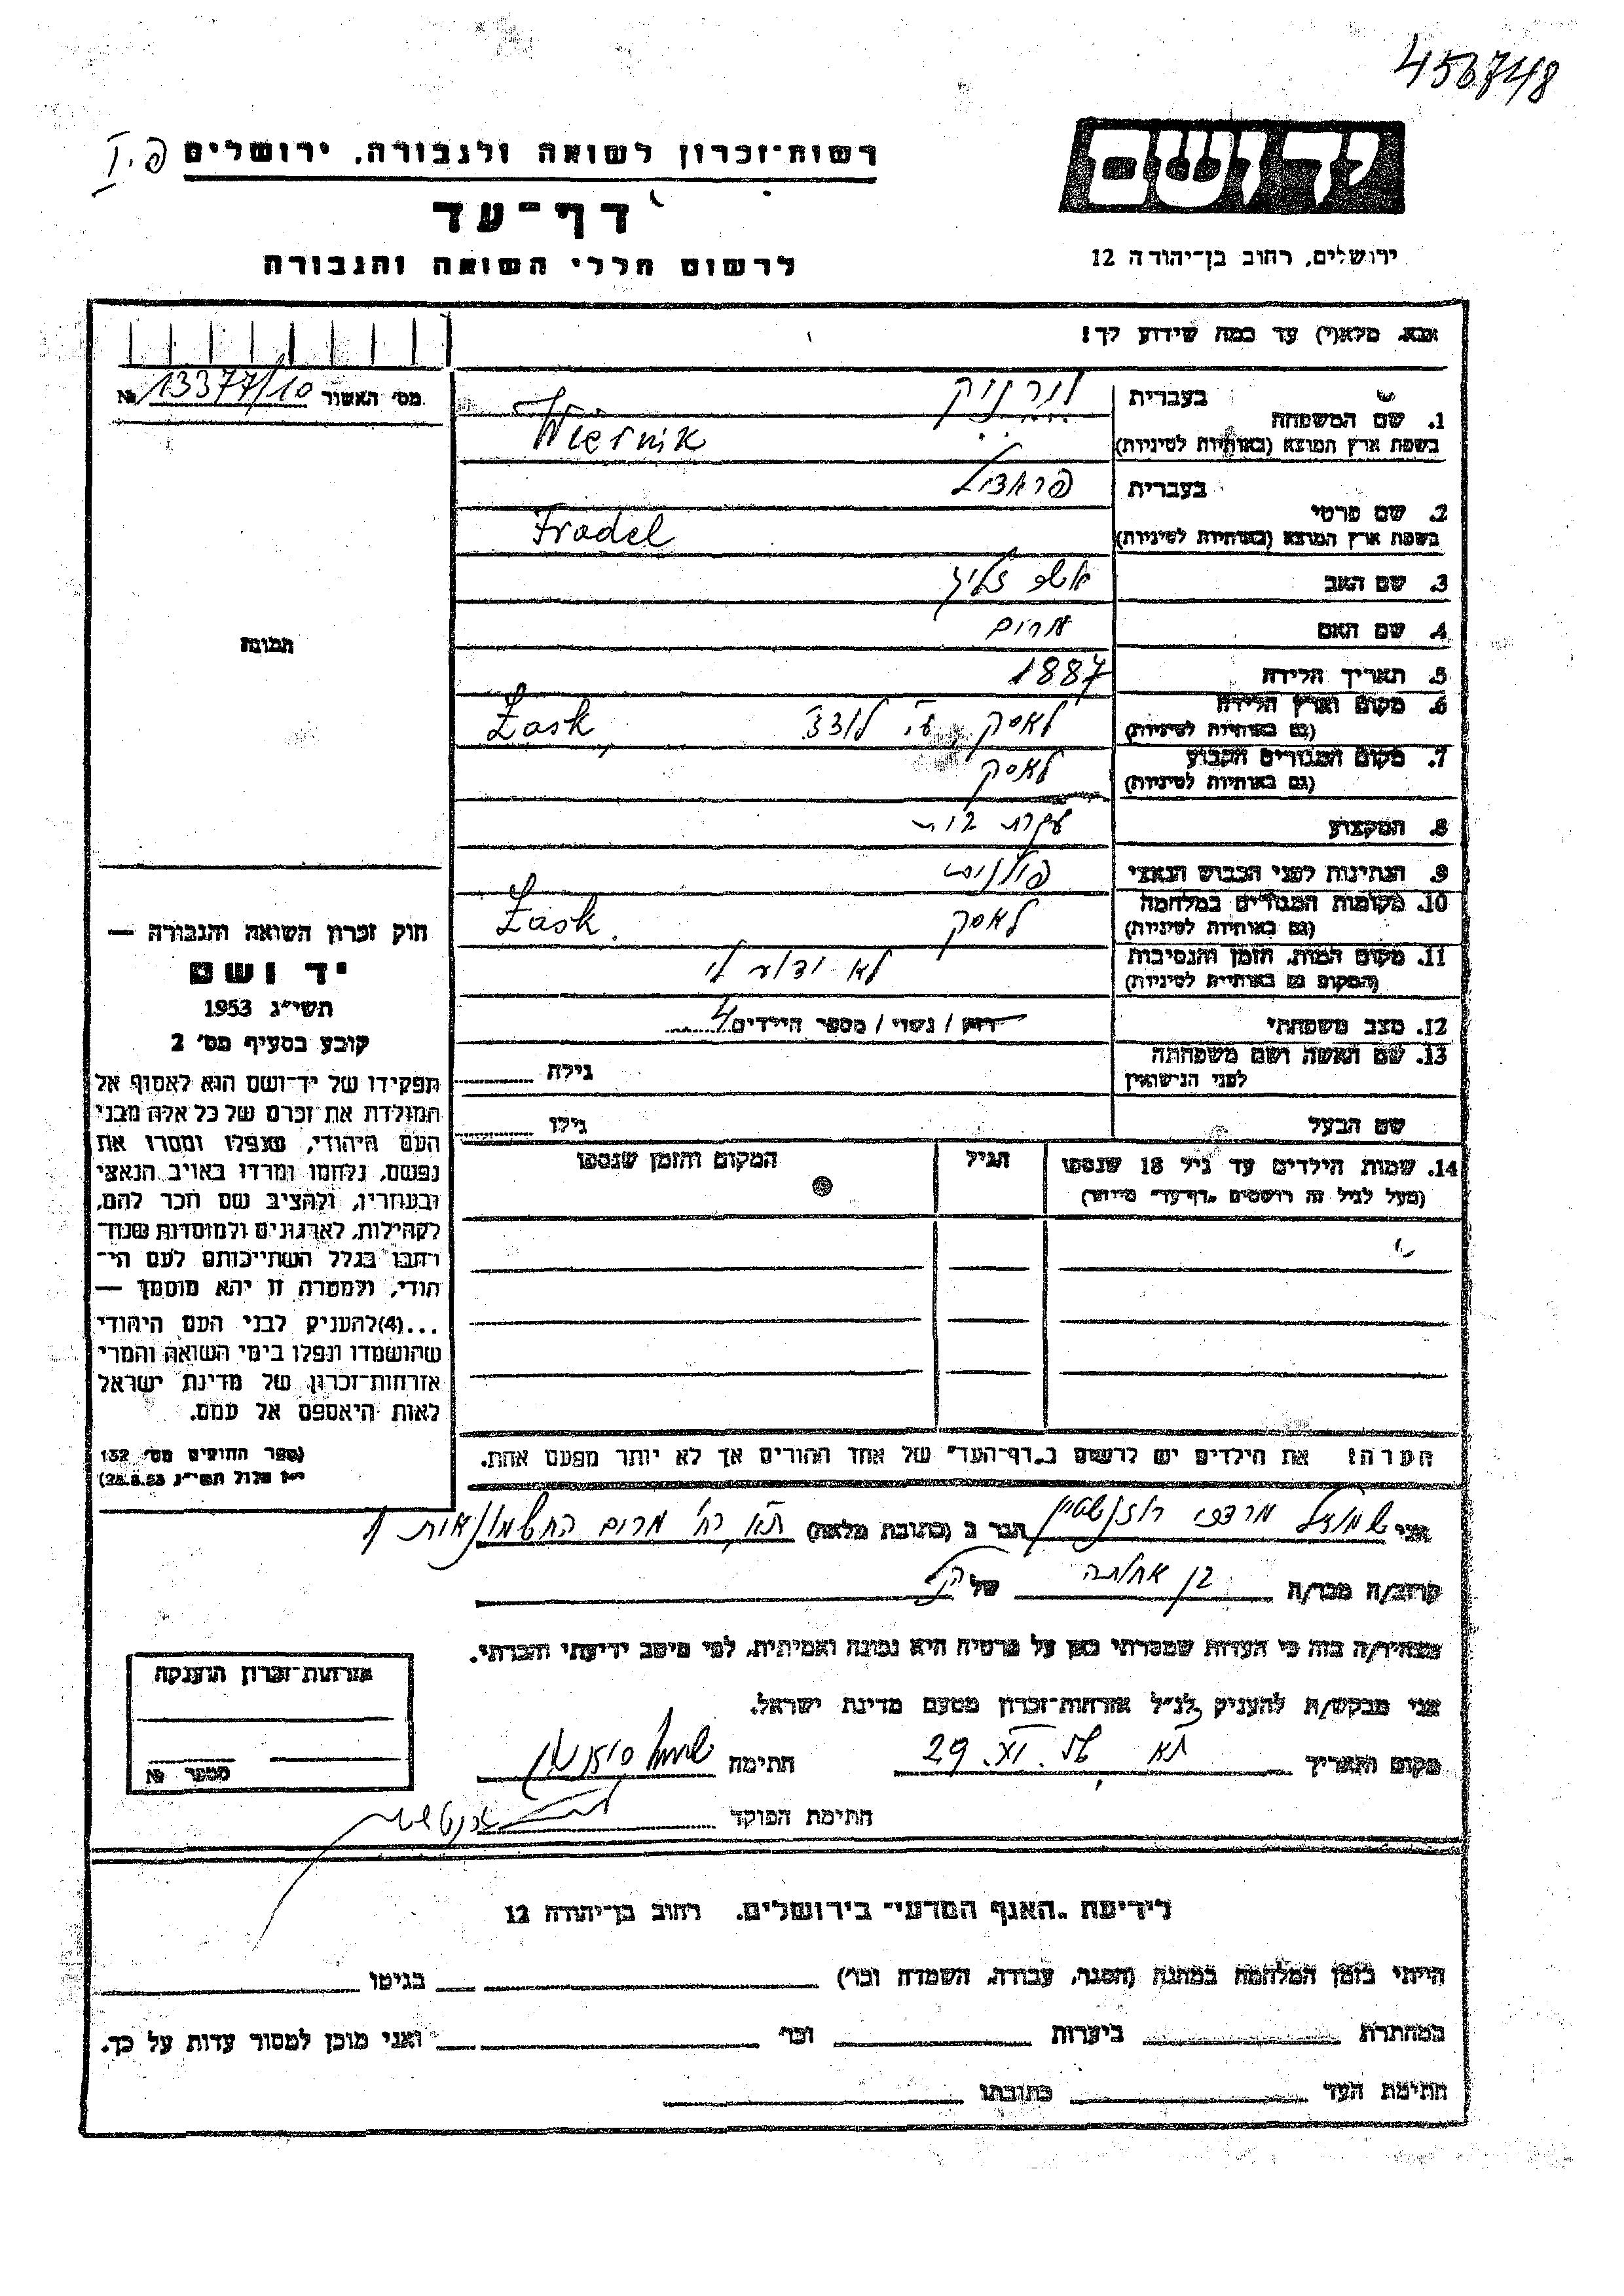 456748
רשות־זכרון לשואה ולגבורה, ירושלים פ.I
דף־עד
לרשום חללי השואה והגבורה
יד ושם
ירושלים, רחוב בן־יהודה 12
אנא, מלא(י) עד כמה שידוע לך!
מס' האשור № 13377/10
1. שם המשפחה
בעברית ורניק
בשפת ארץ המוצא (באותיות לטיניות) Wiernik
2. שם פרטי
בעברית פראדל
בשפת ארץ המוצא (באותיות לטיניות) Fradel
3. שם האב אשר זליג
4. שם האם מרים
5. תאריך הלידה 1887
6. מקום וארץ הלידה
(גם באותיות לטיניות) לאסק, ע"י לודז' Łask,
7. מקום המגורים הקבוע
(גם באותיות לטיניות) לאסק
8. המקצוע עקרת בית
9. הנתינות לפני הכבוש הנאצי פולנית
10. מקומות המגורים במלחמה
(גם באותיות לטיניות) לאסק Łask.
11. מקום המות, הזמן והנסיבות
(המקום גם באותיות לטיניות) לא ידוע לי
12. מצב משפחתי רווק / נשוי / מספר הילדים 4
13. שם האשה ושם משפחתה
לפני הנישואין גילה
שם הבעל גילו
14. שמות הילדים עד גיל 18 שנספו
(מעל לגיל זה רושמים "דף־עד" מיוחד)
הגיל
המקום והזמן שנספו
הערה! את הילדים יש לרשום ב"דף־העד" של אחד ההורים אך לא יותר מפעם אחת.
תמונה
חוק זכרון השואה והגבורה —
יד ושם
תשי"ג 1953
קובע בסעיף מס' 2
תפקידו של יד־ושם הוא לאסוף אל
המולדת את זכרם של כל אלה מבני
העם היהודי, שנפלו ומסרו את
נפשם, נלחמו ומרדו באויב הנאצי
ובעוזריו, ולהציב שם וזכר להם,
לקהילות, לארגונים ולמוסדות שנח־
רבו בגלל השתייכותם לעם הי־
הודי, ולמטרה זו יהא מוסמך —
...(4)להעניק לבני העם היהודי
שהושמדו ונפלו בימי השואה והמרי
אזרחות־זכרון של מדינת ישראל
לאות היאספם אל עמם.
(ספר החוקים מס' 132
י"ז אלול תשי"ג 28.8.53)
אני שמואל מרדכי רוזנשטיין הגר ב (כתובת מלאה) ת"א, רח' מרום החשמונאות 1
קרוב/ה מכר/ה בן אחותה של הנ"ל
מצהיר/ה בזה כי העדות שמסרתי כאן על פרטיה היא נכונה ואמיתית, לפי מיטב ידיעתי והכרתי.
אני מבקש/ת להעניק לנ"ל אזרחות־זכרון מטעם מדינת ישראל.
מקום ותאריך ת"א 29. חתימה
חתימת הפוקד
אזרחות־זכרון הוענקה
מספר №
לידיעת "האגף המדעי" בירושלים, רחוב בן־יהודה 12
הייתי בזמן המלחמה במחנה (הסגר, עבודה, השמדה וכו') בגיטו
במחתרת ביערות וכו' ואני מוכן למסור עדות על כך.
חתימת העד כתובתו